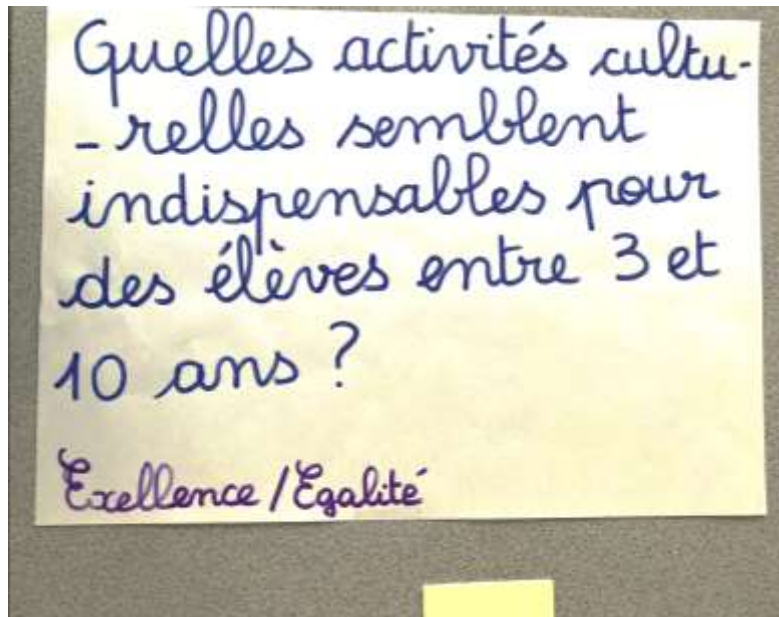 Quelles activités cultu-
-relles semblent
indispensables pour
des élèves entre 3 et
10 ans ?
Exellence / Egalité